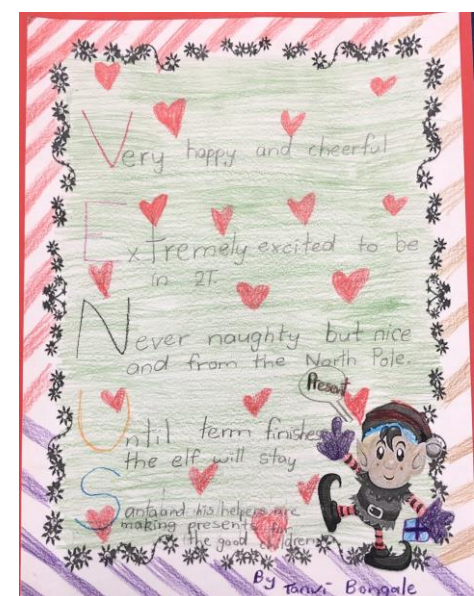 Very happy and cheerful
Extremely excited to be
in 2T.
Never naughty but nice
and from the North Pole.
Present
Until term finishes
the elf will stay
Santa and his helpers are
making presents for
the good children
By Tanvi Bongale